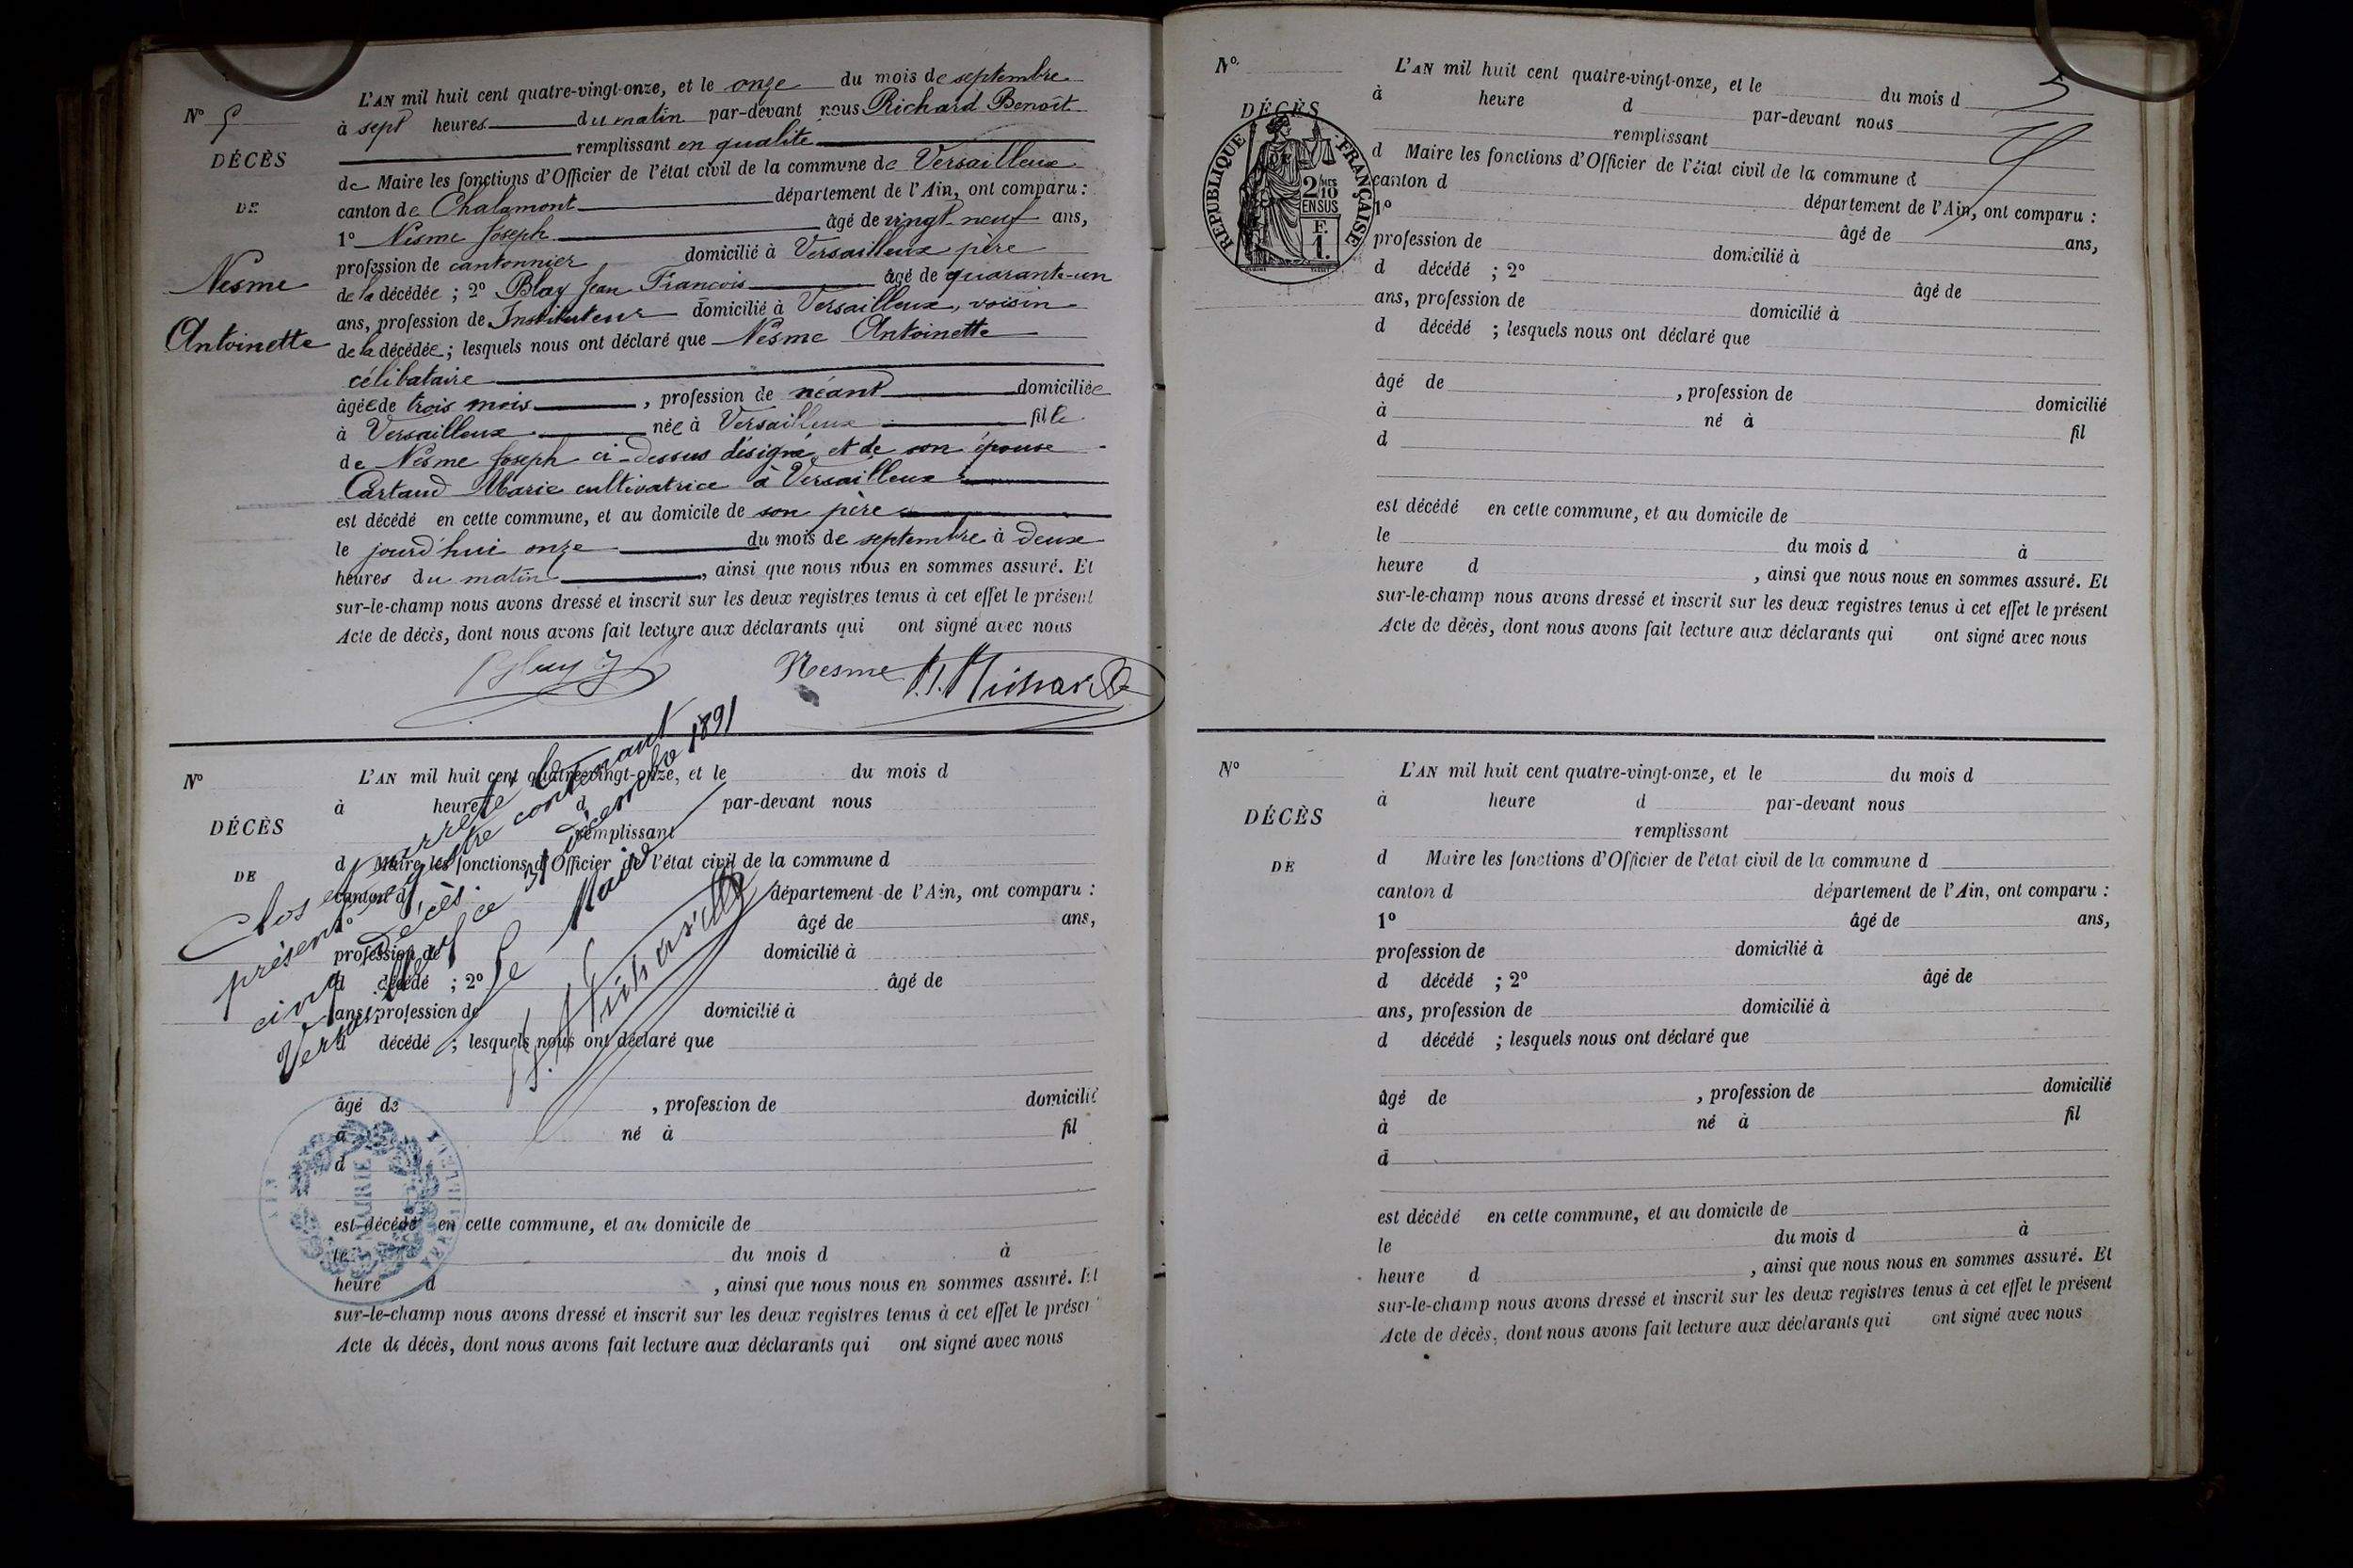 N° 5
DÉCÈS
DE
Nesme
Antoinette
L'AN mil huit cent quatre-vingt-onze, et le onze du mois de septembre
à sept heures du matin par-devant nous Richard Benoît
remplissant en qualité
de Maire les fonctions d'Officier de l'état civil de la commune de Versailleux
canton de Chalamont département de l'Ain, ont comparu :
1° Nesme Joseph âgé de vingt neuf ans,
profession de cantonnier domicilié à Versailleux père
de la décédée ; 2° Blay Jean François âgé de quarante-un
ans, profession de Instituteur domicilié à Versailleux, voisin
de la décédée ; lesquels nous ont déclaré que Nesme Antoinette
célibataire
âgée de trois mois , profession de néant domiciliée
à Versailleux née à Versailleux fille
de Nesme Joseph ci-dessus désigné, et de son épouse
Cartaud Marie cultivatrice à Versailleux
est décédé en cette commune, et au domicile de son père
le jourd'hui onze du mois de septembre à deux
heures du matin , ainsi que nous nous en sommes assuré. Et
sur-le-champ nous avons dressé et inscrit sur les deux registres tenus à cet effet le présent
Acte de décès, dont nous avons fait lecture aux déclarants qui ont signé avec nous
Blay J Nesme Richard
N°
DÉCÈS
DE
L'AN mil huit cent quatre-vingt-onze, et le du mois d
à heure d par-devant nous
remplissant
d Maire les fonctions d'Officier de l'état civil de la commune d
canton d département de l'Ain, ont comparu :
1° âgé de ans,
profession de domicilié à
d décédé ; 2° âgé de
ans, profession de domicilié à
d décédé ; lesquels nous ont déclaré que
âgé de , profession de domicilié
à né à fil
d
est décédé en cette commune, et au domicile de
le du mois d à
heure d , ainsi que nous nous en sommes assuré. Et
sur-le-champ nous avons dressé et inscrit sur les deux registres tenus à cet effet le présent
Acte de décès, dont nous avons fait lecture aux déclarants qui ont signé avec nous
Clos et arrêté le
présent registre contenant
cinq décès.
Versailleux ce 31 décembre 1891
Le Maire
Richard
MAIRIE
AIN
N°
DÉCÈS
REPUBLIQUE FRANÇAISE
2/10
EN SUS
F.
1.
5
L'AN mil huit cent quatre-vingt-onze, et le du mois d
à heure d par-devant nous
remplissant
d Maire les fonctions d'Officier de l'état civil de la commune d
canton d département de l'Ain, ont comparu :
1° âgé de ans,
profession de domicilié à
d décédé ; 2° âgé de
ans, profession de domicilié à
d décédé ; lesquels nous ont déclaré que
âgé de , profession de domicilié
à né à fil
d
est décédé en cette commune, et au domicile de
le du mois d à
heure d , ainsi que nous nous en sommes assuré. Et
sur-le-champ nous avons dressé et inscrit sur les deux registres tenus à cet effet le présent
Acte de décès, dont nous avons fait lecture aux déclarants qui ont signé avec nous
N°
DÉCÈS
DE
L'AN mil huit cent quatre-vingt-onze, et le du mois d
à heure d par-devant nous
remplissant
d Maire les fonctions d'Officier de l'état civil de la commune d
canton d département de l'Ain, ont comparu :
1° âgé de ans,
profession de domicilié à
d décédé ; 2° âgé de
ans, profession de domicilié à
d décédé ; lesquels nous ont déclaré que
âgé de , profession de domicilié
à né à fil
d
est décédé en cette commune, et au domicile de
le du mois d à
heure d , ainsi que nous nous en sommes assuré. Et
sur-le-champ nous avons dressé et inscrit sur les deux registres tenus à cet effet le présent
Acte de décès, dont nous avons fait lecture aux déclarants qui ont signé avec nous